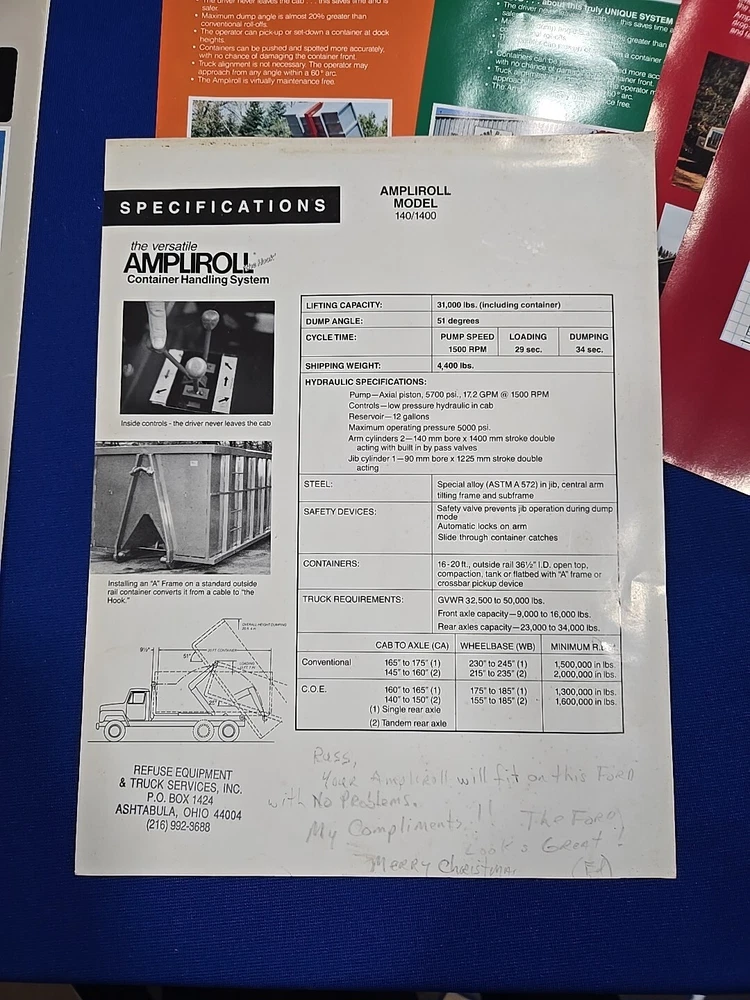 safer.
• Maximum dump angle is almost 20% greater than
conventional roll-offs.
• The operator can pick-up or set-down a container at dock
heights.
• Containers can be pushed and spotted more accurately,
with no chance of damaging the container front.
• Truck alignment is not necessary. The operator may
approach from any angle within a 60° arc.
• The Ampliroll is virtually maintenance free.
about this truly UNIQUE SYSTEM
SPECIFICATIONS
AMPLIROLL
MODEL
140/1400
the versatile
AMPLIROLL
Container Handling System
Inside controls - the driver never leaves the cab
Installing an "A" Frame on a standard outside
rail container converts it from a cable to "the
Hook."
LIFTING CAPACITY: 31,000 lbs. (including container)
DUMP ANGLE: 51 degrees
CYCLE TIME: PUMP SPEED LOADING DUMPING
1500 RPM 29 sec. 34 sec.
SHIPPING WEIGHT: 4,400 lbs.
HYDRAULIC SPECIFICATIONS:
Pump—Axial piston, 5700 psi., 17.2 GPM @ 1500 RPM
Controls—low pressure hydraulic in cab
Reservoir—12 gallons
Maximum operating pressure 5000 psi.
Arm cylinders 2—140 mm bore x 1400 mm stroke double
acting with built in by pass valves
Jib cylinder 1—90 mm bore x 1225 mm stroke double
acting
STEEL: Special alloy (ASTM A 572) in jib, central arm
tilting frame and subframe
SAFETY DEVICES: Safety valve prevents jib operation during dump
mode
Automatic locks on arm
Slide through container catches
CONTAINERS: 16-20 ft., outside rail 36½" I.D. open top,
compaction, tank or flatbed with "A" frame or
crossbar pickup device
TRUCK REQUIREMENTS: GVWR 32,500 to 50,000 lbs.
Front axle capacity—9,000 to 16,000 lbs.
Rear axles capacity—23,000 to 34,000 lbs.
CAB TO AXLE (CA) WHEELBASE (WB) MINIMUM R.
Conventional 165" to 175" (1) 230" to 245" (1) 1,500,000 in lbs.
145" to 160" (2) 215" to 235" (2) 2,000,000 in lbs.
C.O.E. 160" to 165" (1) 175" to 185" (1) 1,300,000 in lbs.
140" to 150" (2) 155" to 185" (2) 1,600,000 in lbs.
(1) Single rear axle
(2) Tandem rear axle
REFUSE EQUIPMENT
& TRUCK SERVICES, INC.
P.O. BOX 1424
ASHTABULA, OHIO 44004
(216) 992-3688
Russ,
Your Ampliroll will fit on this Ford
with No Problems.
My Compliments !! The Ford
Look's Great!
Merry Christmas (Ed)